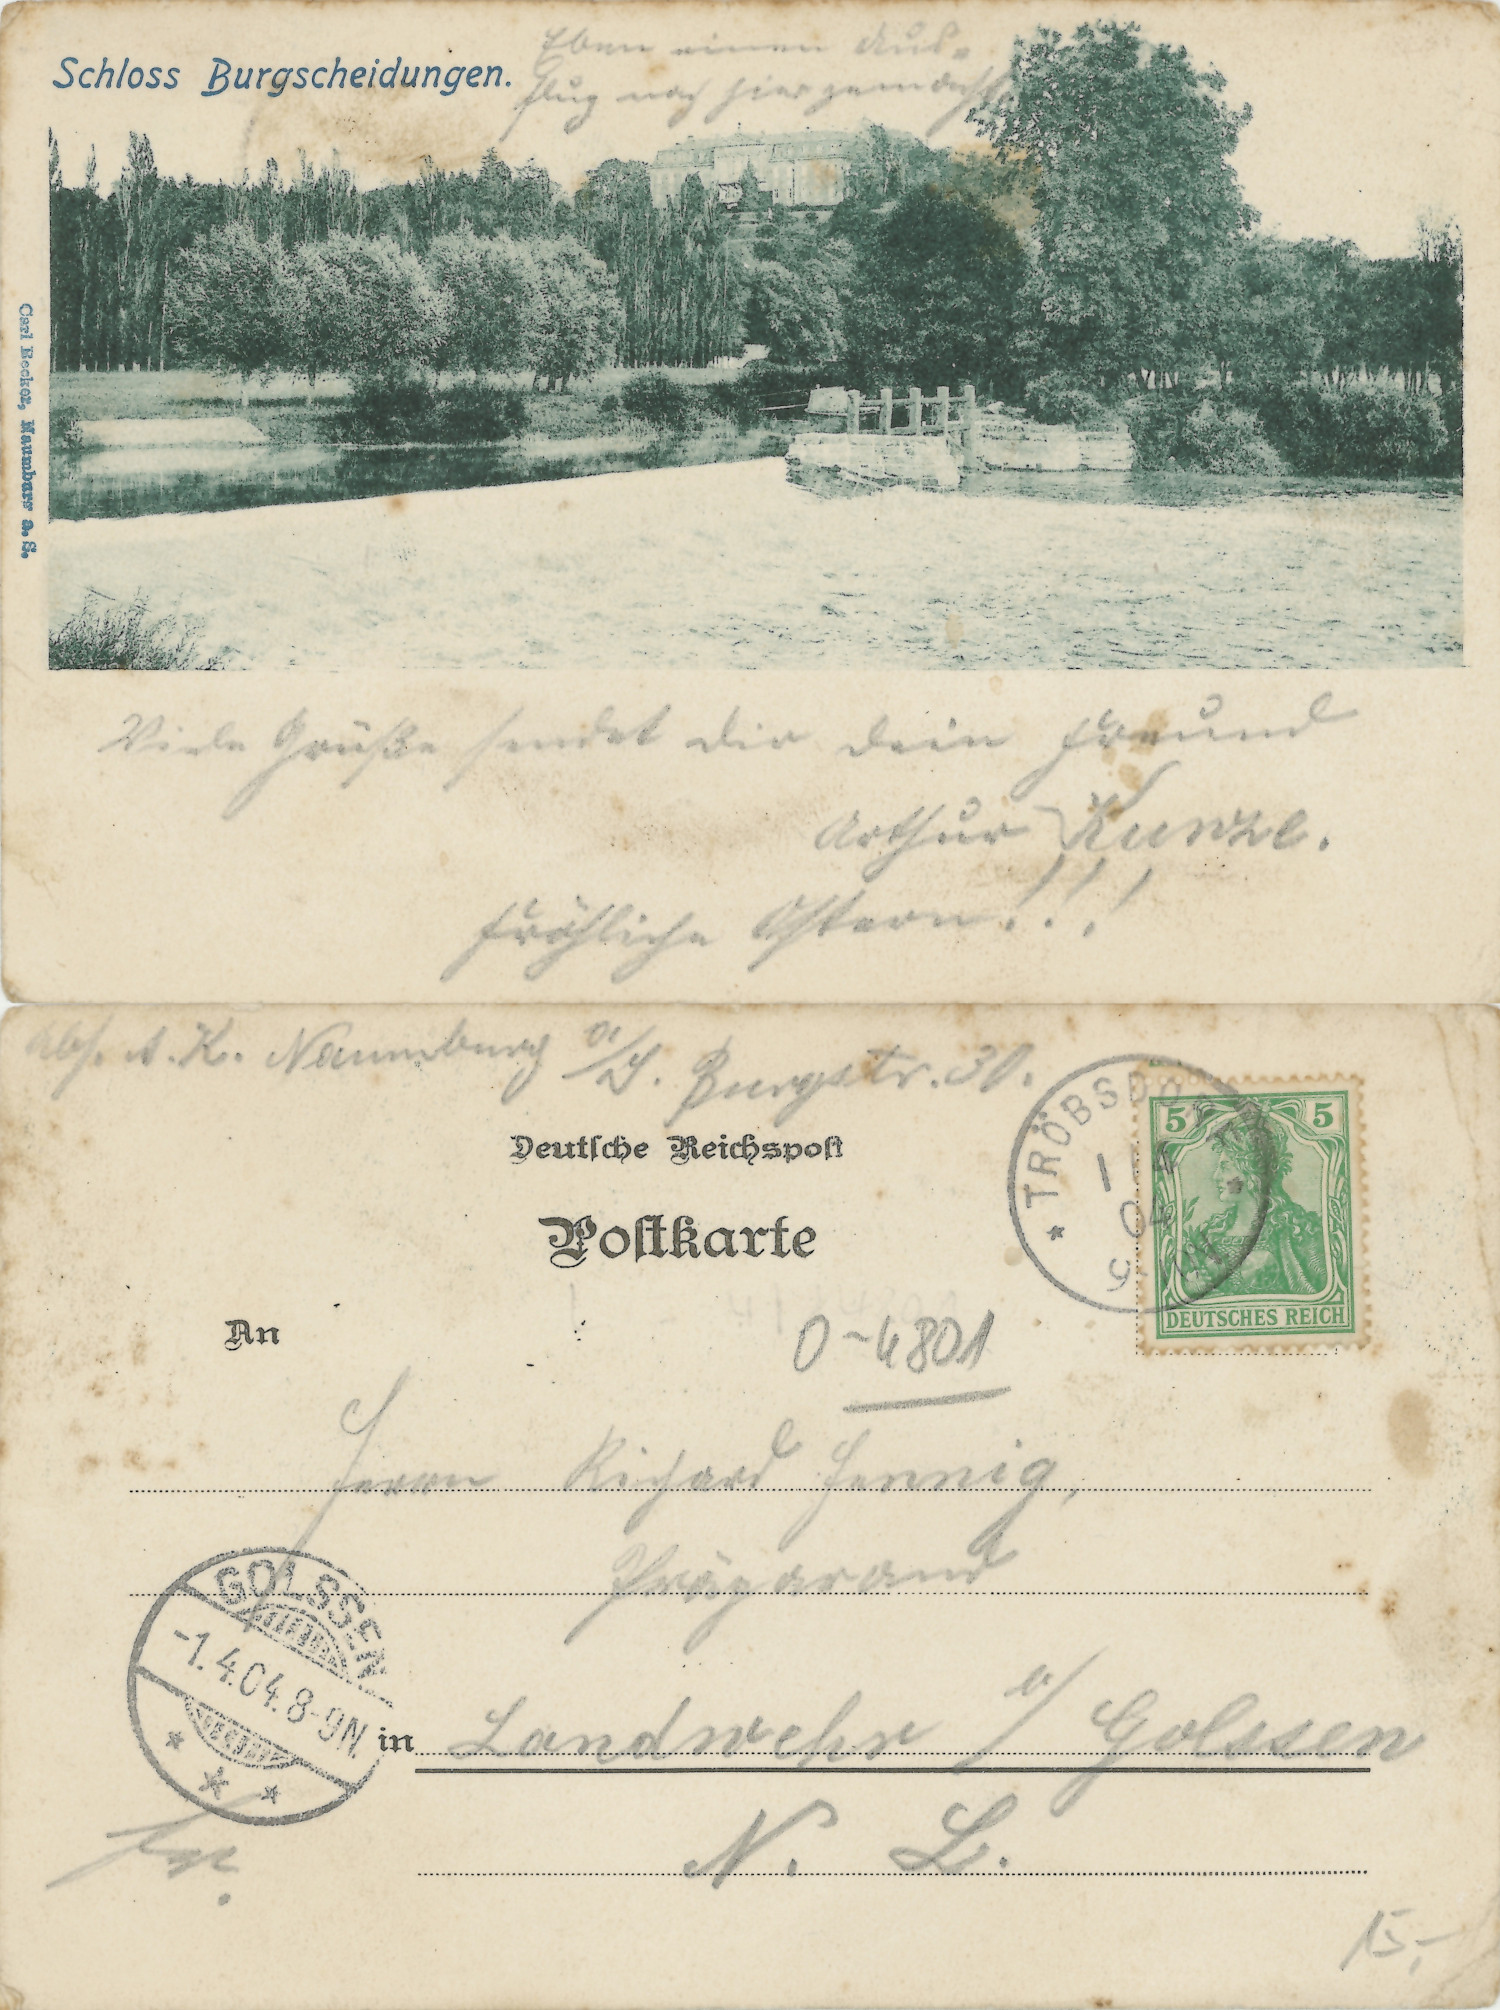 Schloss Burgscheidungen.
Eben einen Aus-
flug nach hier gemacht
Carl Becker, Naumburg a. S.
Viele Grüße sendet dir dein Freund
Arthur Kunze.
Fröhliche Ostern!!!
Abs. A. K. Naumburg a/S. Burgstr. 30.
TRÖBSDO
1 4
04
Deutsche Reichspost
Postkarte
5 5
DEUTSCHES REICH
An
O-4801
Herrn Richard Hennig,
Präparand
GOLSSEN
-1.4.04.8-9N.
in Landwehr b/ Golssen
N. L.
15,-